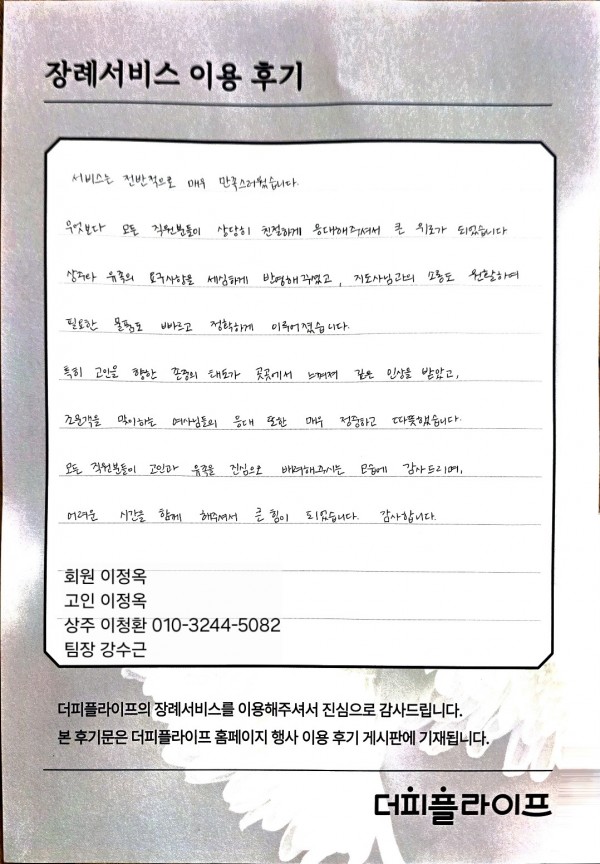 장례서비스 이용 후기
서비스는 전반적으로 매우 만족스러웠습니다.
무엇보다 모든 직원분들이 상당히 친절하게 응대해주셔서 큰 위로가 되었습니다
상주와 유족의 요구사항을 세심하게 반영해주었고, 지도사님과의 소통도 원활하여
필요한 물품도 빠르고 정확하게 이루어졌습니다.
특히 고인을 향한 존중의 태도가 곳곳에서 느껴져 깊은 인상을 받았고,
조문객을 맞이하는 여사님들의 응대 또한 매우 정중하고 따뜻했습니다.
모든 직원분들이 고인과 유족을 진심으로 배려해주시는 모습에 감사드리며,
어려운 시간을 함께 해주셔서 큰 힘이 되었습니다. 감사합니다.
회원 이정옥
고인 이정옥
상주 이청환 010-3244-5082
팀장 강수근
더피플라이프의 장례서비스를 이용해주셔서 진심으로 감사드립니다.
본 후기문은 더피플라이프 홈페이지 행사 이용 후기 게시판에 기재됩니다.
더피플라이프